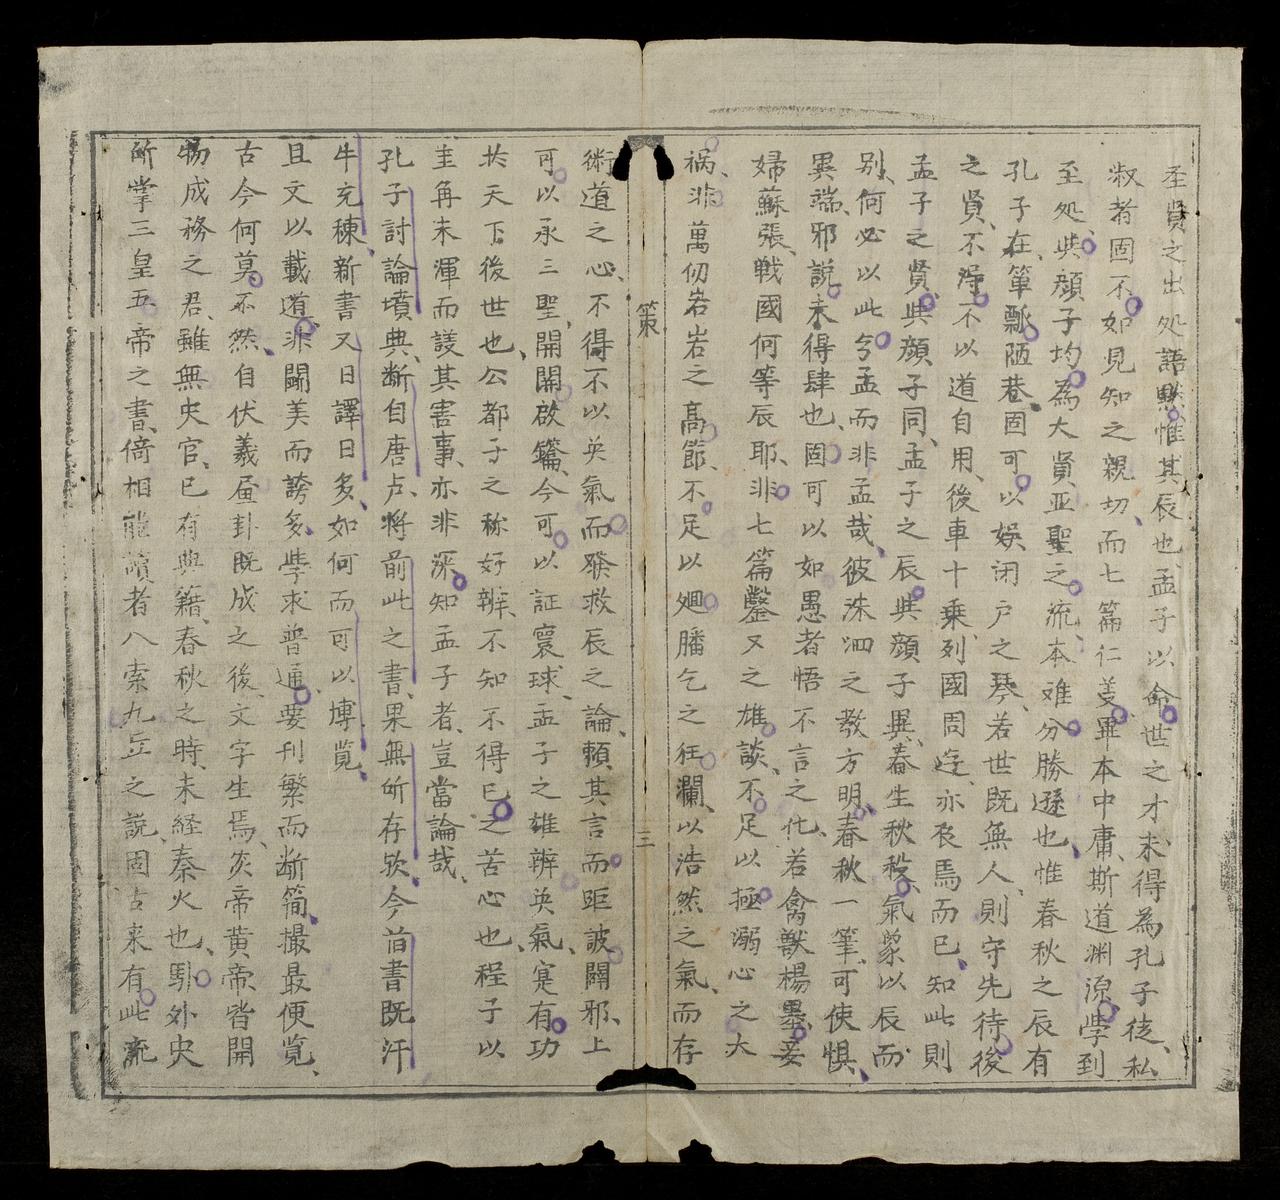 圣賢之出処語黙惟其辰也孟子以命世之才未得為孔子徒、私
淑者固不如見知之親切、而七篇仁義畢本中庸、斯道渊源学到
至処、與顔子均為大賢亚聖之流、本难分勝遜也、惟春秋之辰有
孔子在、箪瓢陋巷、固可以娱闭户之琴、若世既無人、則守先待後
之賢、不得不以道自用、後車十乗、列國周遊、亦辰焉而已、知此則
孟子之賢、與顔子同、孟子之辰、與顔子異、春生秋殺、氣象以辰而
别、何必以此夸孟而非孟哉、彼洙泗之教方明、春秋一筆、可使惧、
異端、邪説、未得肆也、固可以如愚者悟不言之化、若禽獸楊墨、妾
婦蘇張、戦國何等辰耶、非七篇鑿又之雄談、不足以極溺心之大
禍、非萬仞岩岩之高節、不足以廻膰乞之狂瀾、以浩然之氣、而存
策
三
術道之心、不得不以英氣而發救辰之論、頼其言而距詖闢邪、上
可以承三聖、開關啟鑰、今可以証寰球、孟子之雄辨英氣、寔有功
於天下後世也、公都子之称好辨、不知不得已之苦心也、程子以
圭再未渾而議其害事、亦非深知孟子者、豈當論哉、
孔子討論墳典、断自唐虞、将前此之書、果無所存欤、今旧書既汗
牛充棟、新書又日譯日多、如何而可以博覧、
且文以載道、非闘美而誇多、學求普通、要刊繁而断簡、撮最便覧、
古今何莫不然、自伏羲届卦既成之後、文字生焉、炎帝黄帝、皆開
物成務之君、雖無史官、已有典籍、春秋之時、未経秦火也、馹外史
所掌三皇五帝之書、倚相能讀者八索九丘之説、固古来有此流